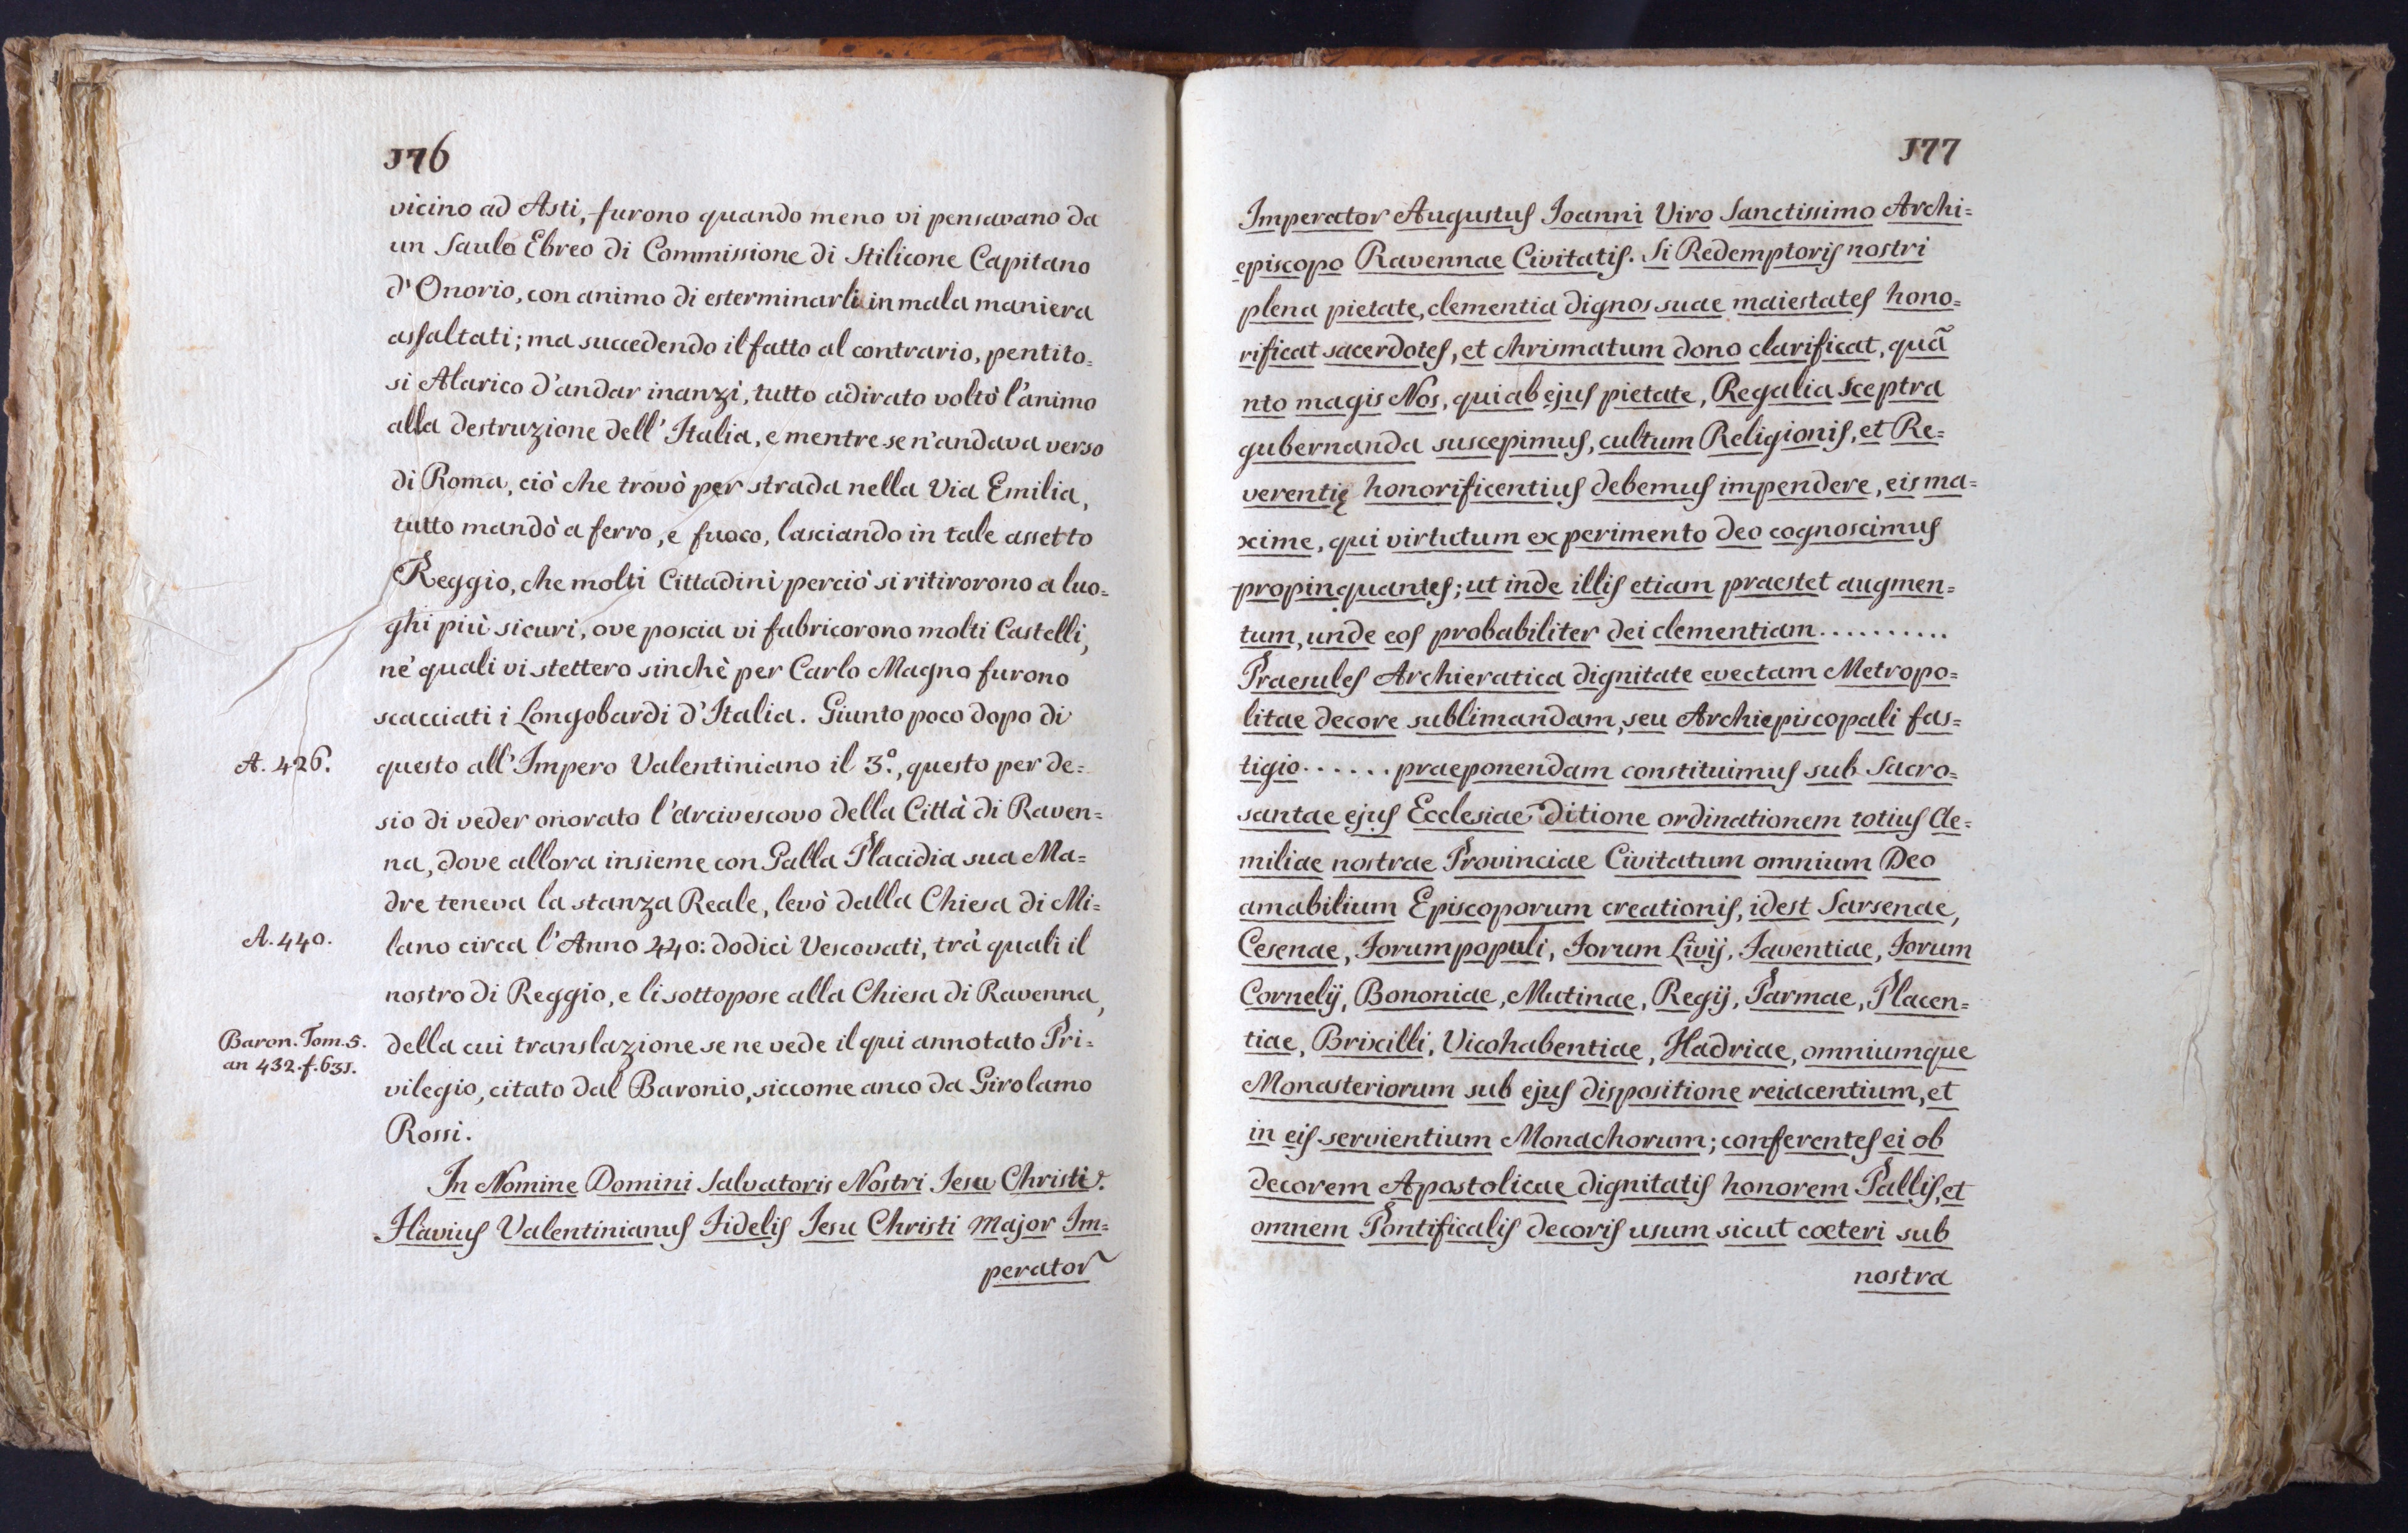 176
vicino ad Asti, furono quando meno vi pensavano da
un Saulo Ebreo di Commissione di Stilicone Capitano
d'Onorio, con animo di esterminarli in mala maniera
assaltati; ma succedendo il fatto al contrario, pentito=
si Alarico d'andar inanzi, tutto adirato voltò l'animo
alla destruzione dell'Italia, e mentre se n'andava verso
di Roma, ciò che trovò per strada nella Via Emilia,
tutto mandò a ferro, e fuoco, lasciando in tale assetto
Reggio, che molti Cittadini perciò si ritirorono a luo=
ghi più sicuri, ove poscia vi fabricorono molti Castelli,
né quali vi stettero sinchè per Carlo Magno furono
scacciati i Longobardi d'Italia. Giunto poco dopo di
A. 426.
questo all'Impero Valentiniano il 3.º, questo per de=
sio di veder onorato l'Arcivescovo della Città di Raven=
na, dove allora insieme con Galla Placidia sua Ma=
dre teneva la stanza Reale, levò dalla Chiesa di Mi=
A. 440.
lano circa l'Anno 440: dodici Vescovati, trà quali il
nostro di Reggio, e li sottopose alla Chiesa di Ravenna,
Baron. Tom. 5.
an 432. f. 631.
della cui translazione se ne vede il qui annotato Pri=
vilegio, citato dal Baronio, siccome anco da Girolamo
Rossi.
In Nomine Domini Salvatoris Nostri Jesu Christi.
Flavius Valentinianus Fidelis Jesu Christi Major Im=
perator
177
Imperator Augustus Joanni Viro Sanctissimo Archi=
episcopo Ravennae Civitatis. Si Redemptoris nostri
plena pietate, clementia dignos suae maiestates hono=
rificat sacerdotes, et chrismatum dono clarificat, quã
nto magis Nos, qui ab ejus pietate, Regalia Sceptra
gubernanda suscepimus, cultum Religionis, et Re=
verentię honorificentius debemus impendere, eis ma=
xime, qui virtutum experimento deo cognoscimus
propinquantes; ut inde illis etiam praestet augmen=
tum, unde eos probabiliter dei clementiam..........
Praesules Archieratica dignitate evectam Metropo=
litae decore sublimandam, seu Archiepiscopali fas=
tigio...... praeponendam constituimus sub Sacro=
santae ejus Ecclesiae ditione ordinationem totius Ae=
miliae nostrae Provinciae Civitatum omnium Deo
amabilium Episcoporum creationis, idest Sarsenae,
Cesenae, Forumpopuli, Forum Livij, Faventiae, Forum
Cornelij, Bononiae, Mutinae, Regij, Parmae, Placen=
tiae, Brixilli, Vicohabentiae, Hadriae, omniumque
Monasteriorum sub ejus dispositione reiacentium, et
in eis servientium Monachorum; conferentes ei ob
decorem Apostolicae dignitatis honorem Pallis, et
omnem Pontificalis decoris usum sicut cœteri sub
nostra